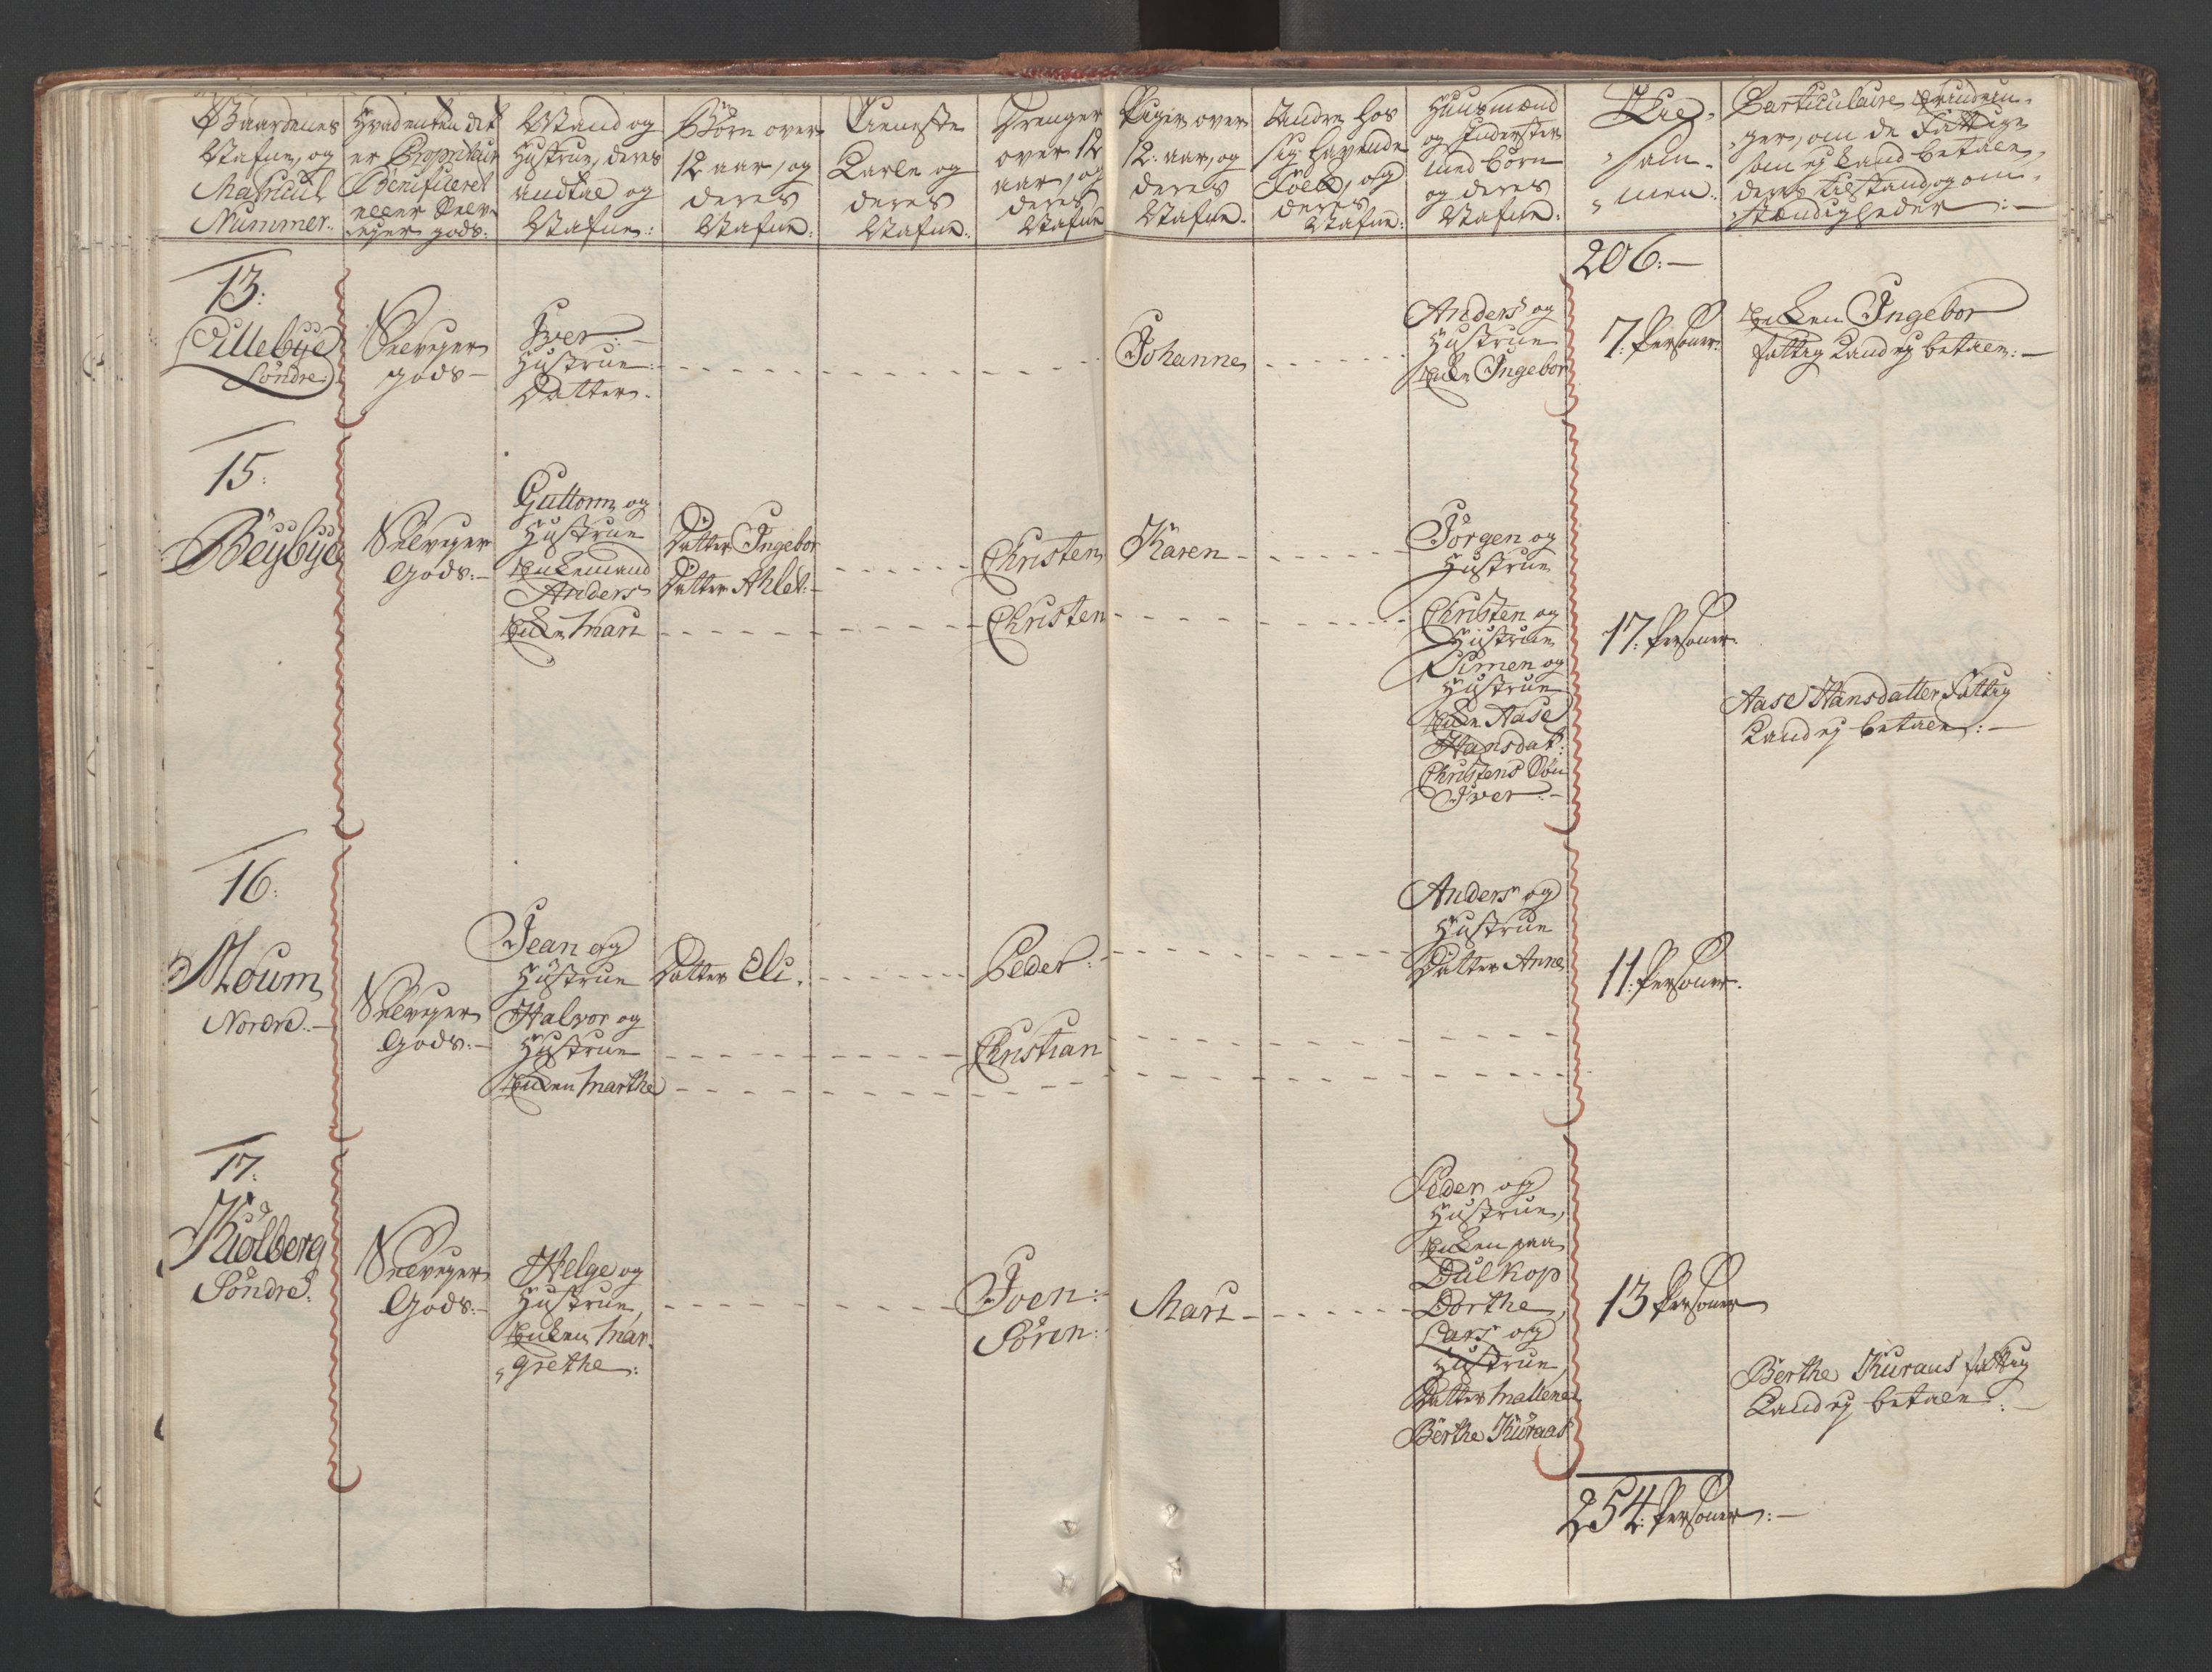 Gaardenes
Nafne, og
Matricul
Nummer.
Hvad enten det
er Propritair
Benificeret
eller Selv-
ejer gods.
Mand og
Hustrue, deres
andtal og
Nafne:
Børn over
12 aar, og
deres
Nafne.
Tieneste
Karle og
deres
Nafne.
Drenger
over 12
aar, og
deres
Nafne
Piger over
12. aar, og
deres
Nafne.
Andre hos
sig havende
Folk, og
deres
Nafne:
Huusmænd
og Inderster
med børn
og deres
Nafne:
Til-
sam-
men.
Particulaire Erindrin-
ger, om de Fattige
som ej kand betale,
deres tilstand og om-
stændigheder:-
206:-
13:
Lillebye
Söndre.
Selvejer
gods-
Iver:-
Hustrue
Datter.
Johanne
Anders og
Hustrue
Enken Ingebor
7: Personer.
Enken Ingebor
fattig kand ej betale:-
15:
Bëybye
Selvejer
Gods:-
Guttorm og
Hustrue
Enkemand
Anders
Enken Mari
Datter Ingebor
Datter Ahlet:-
Christen
Christen
Karen
Jörgen og
Hustrue
Christen og
Hustrue
Simen og
Hustrue
Enken Aase
Hansdat:
Christens Søn
Iver:-
17: Personer.
Aase Hansdatter Fattig
kand ej betale:-
16:
Moum
Nordre.-
Selvejer
Gods:-
Jean og
Hustrue
Halvor og
Hustrue
Enken Marthe
Datter Eli.
Peder:
Christian
Anders og
Hustrue
Datter Anne
11: Personer.
17:
Kiölberg
Söndre.
Selvejer
Gods:-
Helge og
Hustrue,
Enken Mar-
grethe:
Joen:
Sören:
Mari
Peder og
Hustrue,
Enken paa
Dulkop
Dorthe,
Lars og
Hustrue
Datter Mallene
Berthe Kuraas
13 Personer
Berthe Kuraas fattig
kand ej betale:-
254: Personer:-